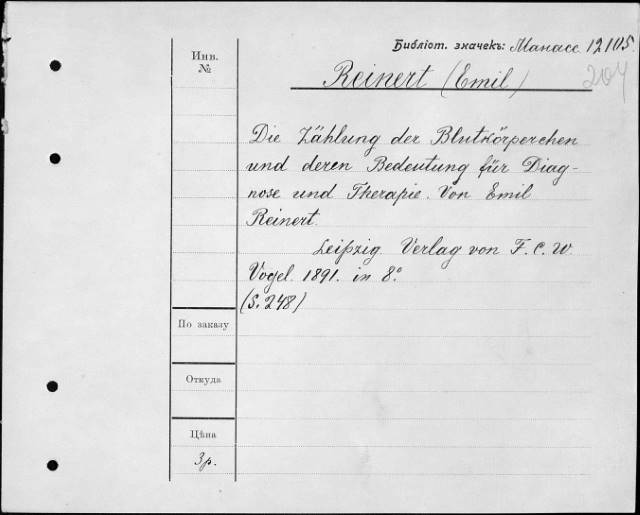 Библіот. значекъ: Манасс 12105.
204
Инв.
№
Reinert (Emil)
Die Zählung der Blutkörperchen
und deren Bedeutung für Diag-
nose und Therapie. Von Emil
Reinert.
Leipzig. Verlag von F. C. W.
Vogel. 1891. in 8°
(S. 248)
По заказу
Откуда
Цѣна
3р.